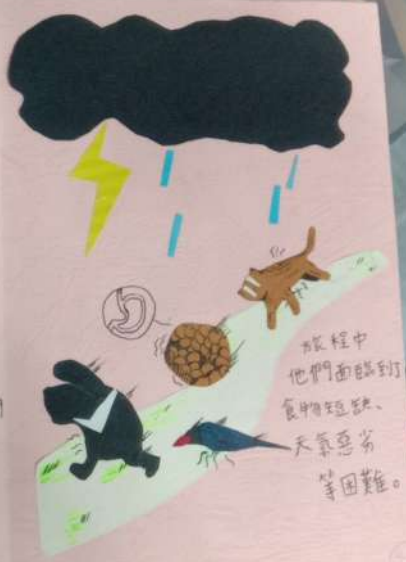 旅程中
他們面臨到
食物短缺、
天氣惡劣
等困難。